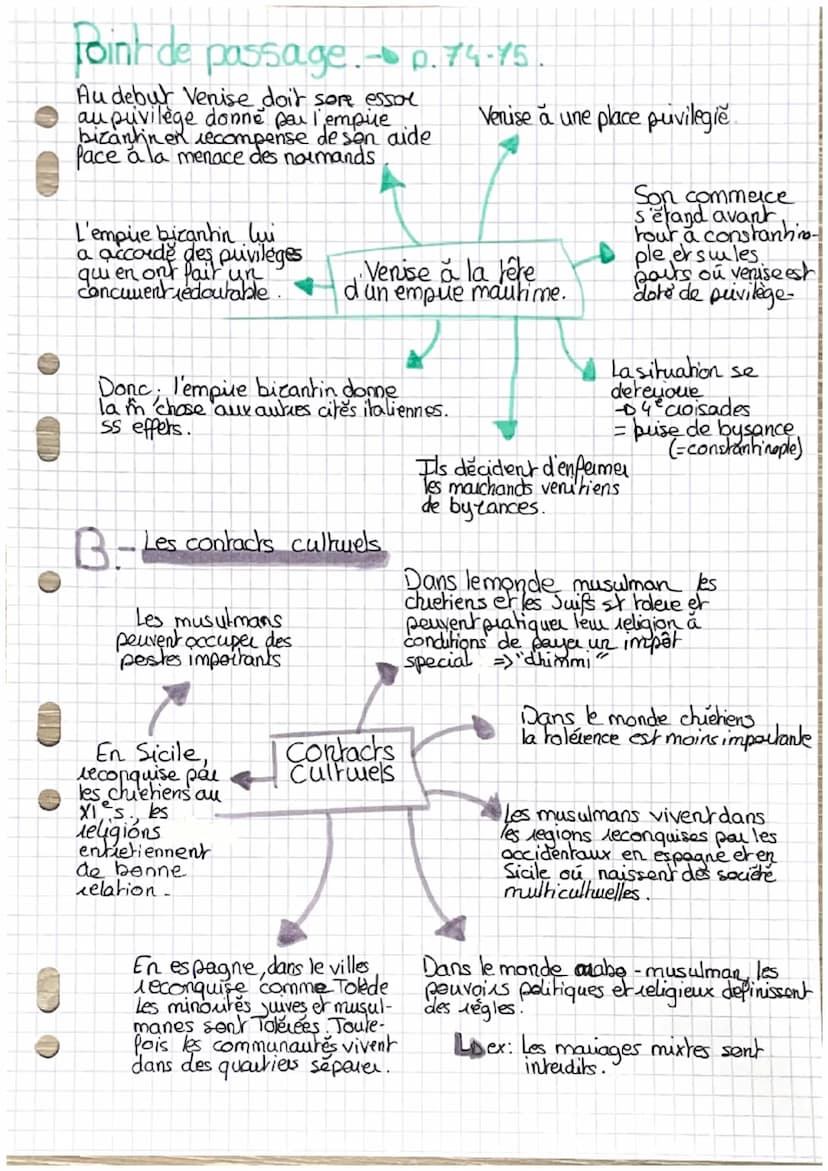 Point de passage. → p. 74-75.
Au debut Venise doit sore essor
au privilège donné par l'empire
bizantin en recompense de son aide
face à la menace des normands
Venise à une place privilegié.
Son commerce
s'étand avant
tout à constantino-
ple et sur les
ports où venise est
doté de privilège.
L'empire bizantin lui
a accordé des privilèges
qui en ont fait un
concurrent redoutable.
Venise à la tête
d'un empire maritime.
Donc, l'empire bizantin donne
la m̂ chose aux autres cités italiennes.
ss effets.
La situation se
dereyoue
→ 4e croisades
= prise de bysance
(=constantinople)
Ils décident d'enfermer
les marchands venitiens
de byzances.
B.- Les contacts culturels
Dans le monde musulman les
chretiens et les Juifs st toleré et
peuvent pratiquer leur religion à
conditions de payer un impôt
special => "dhimmi"
Les musulmans
peuvent occuper des
postes importants
Dans le monde chrétiens
la tolérence est moins importante
Contacts
Culturels
En Sicile,
reconquise par
les chretiens au
XIe s., les
religions
entretiennent
de bonne
relation.
Les musulmans vivent dans
les regions reconquises par les
occidentaux en espagne et en
Sicile où naissent des société
multiculturelles.
En espagne, dans le villes
reconquise comme Tolède
les minorités juives et musul-
manes sont Tolérées. Toute-
fois les communautés vivent
dans des quartiers séparer.
Dans le monde arabo-musulman, les
pouvoirs politiques et religieux definissent
des règles.
↳ ex: Les mariages mixtes sont
interdits.